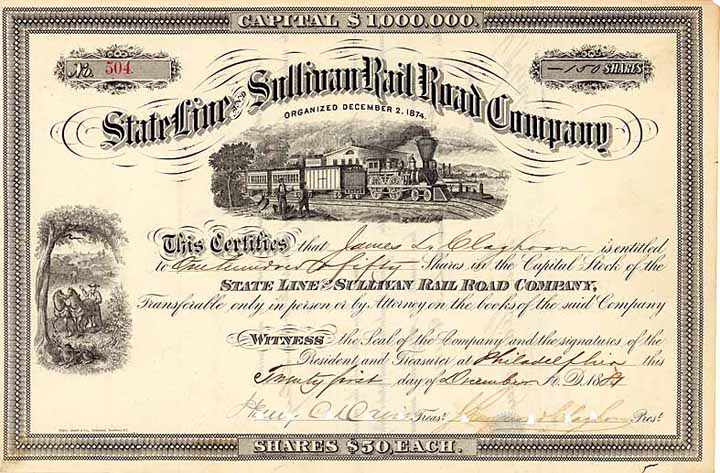 CAPITAL $1,000,000.
No. 504.
—150 SHARES
State Line AND Sullivan Rail Road Company
ORGANIZED DECEMBER 2, 1874.
This Certifies that James L. Claghorn is entitled
to One hundred & fifty Shares in the Capital Stock of the
STATE LINE AND SULLIVAN RAIL ROAD COMPANY,
Transferable only in person or by Attorney on the books of the said Company
WITNESS the Seal of the Company and the signatures of the
President and Treasurer at Philadelphia this
Twenty first day of December A. D. 18
Treasr. Prest.
SHARES $50, EACH.